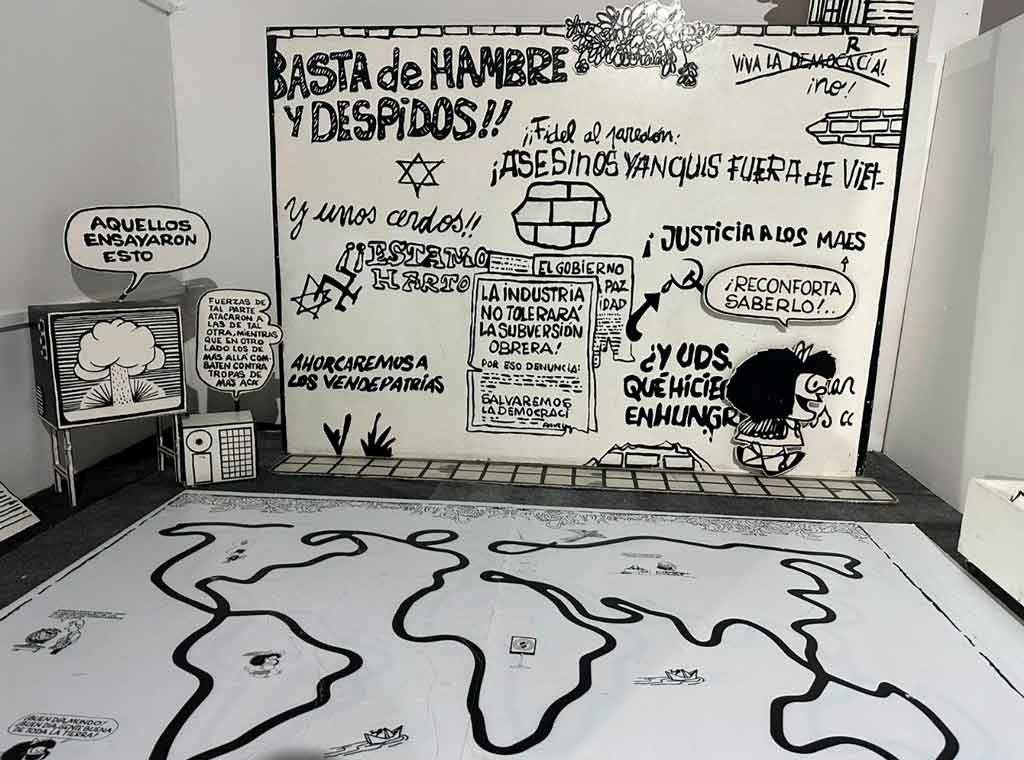 BASTA de HAMBRE
Y DESPIDOS!!
VIVA LA DEMOCRACIA!
¡no!
¡¡Fidel al paredón!
¡ASESINOS YANQUIS FUERA DE VIET-
Y unos cerdos!!
¡¡ESTAMO
HARTO
¡JUSTICIA A LOS MAES
EL GOBIERNO
PAZ
IDAD
LA INDUSTRIA
NO TOLERARÁ
LA SUBVERSIÓN
OBRERA!
POR ESO DENUNCIA:
SALVAREMOS
LA DEMOCRACI
AHORCAREMOS A
LOS VENDEPATRIAS
¿Y UDS.
QUÉ HICIE
EN HUNGR
¡RECONFORTA
SABERLO!..
AQUELLOS
ENSAYARON
ESTO
FUERZAS DE
TAL PARTE
ATACARON A
LAS DE TAL
OTRA, MIENTRAS
QUE EN OTRO
LADO LOS DE
MÁS ALLÁ COM-
BATEN CONTRA
TROPAS DE
MÁS ACÁ
¡BUEN DÍA, MUNDO!
¡BUEN DÍA, GENTE BUENA
DE TODA LA TIERRA!